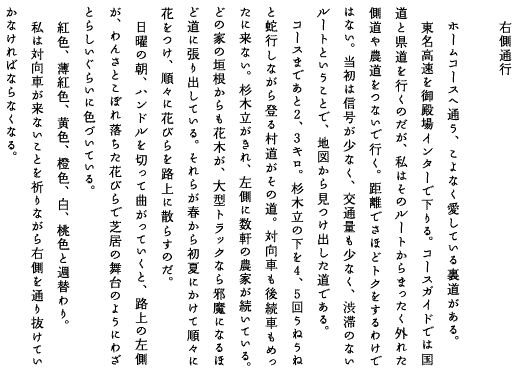 右側通行
ホームコースへ通う、こよなく愛している裏道がある。
東名高速を御殿場インターで下りる。コースガイドでは国
道と県道を行くのだが、私はそのルートからまったく外れた
側道や農道をつないで行く。距離でさほどトクをするわけで
はない。当初は信号が少なく、交通量も少なく、渋滞のない
ルートということで、地図から見つけ出した道である。
コースまであと2、3キロ。杉木立の下を4、5回うねうね
と蛇行しながら登る村道がその道。対向車も後続車もめっ
たに来ない。杉木立がきれ、左側に数軒の農家が続いている。
どの家の垣根からも花木が、大型トラックなら邪魔になるほ
ど道に張り出している。それらが春から初夏にかけて順々に
花をつけ、順々に花びらを路上に散らすのだ。
日曜の朝、ハンドルを切って曲がっていくと、路上の左側
が、わんさとこぼれ落ちた花びらで芝居の舞台のようにわざ
とらしいぐらいに色づいている。
紅色、薄紅色、黄色、橙色、白、桃色と週替わり。
私は対向車が来ないことを祈りながら右側を通り抜けてい
かなければならなくなる。